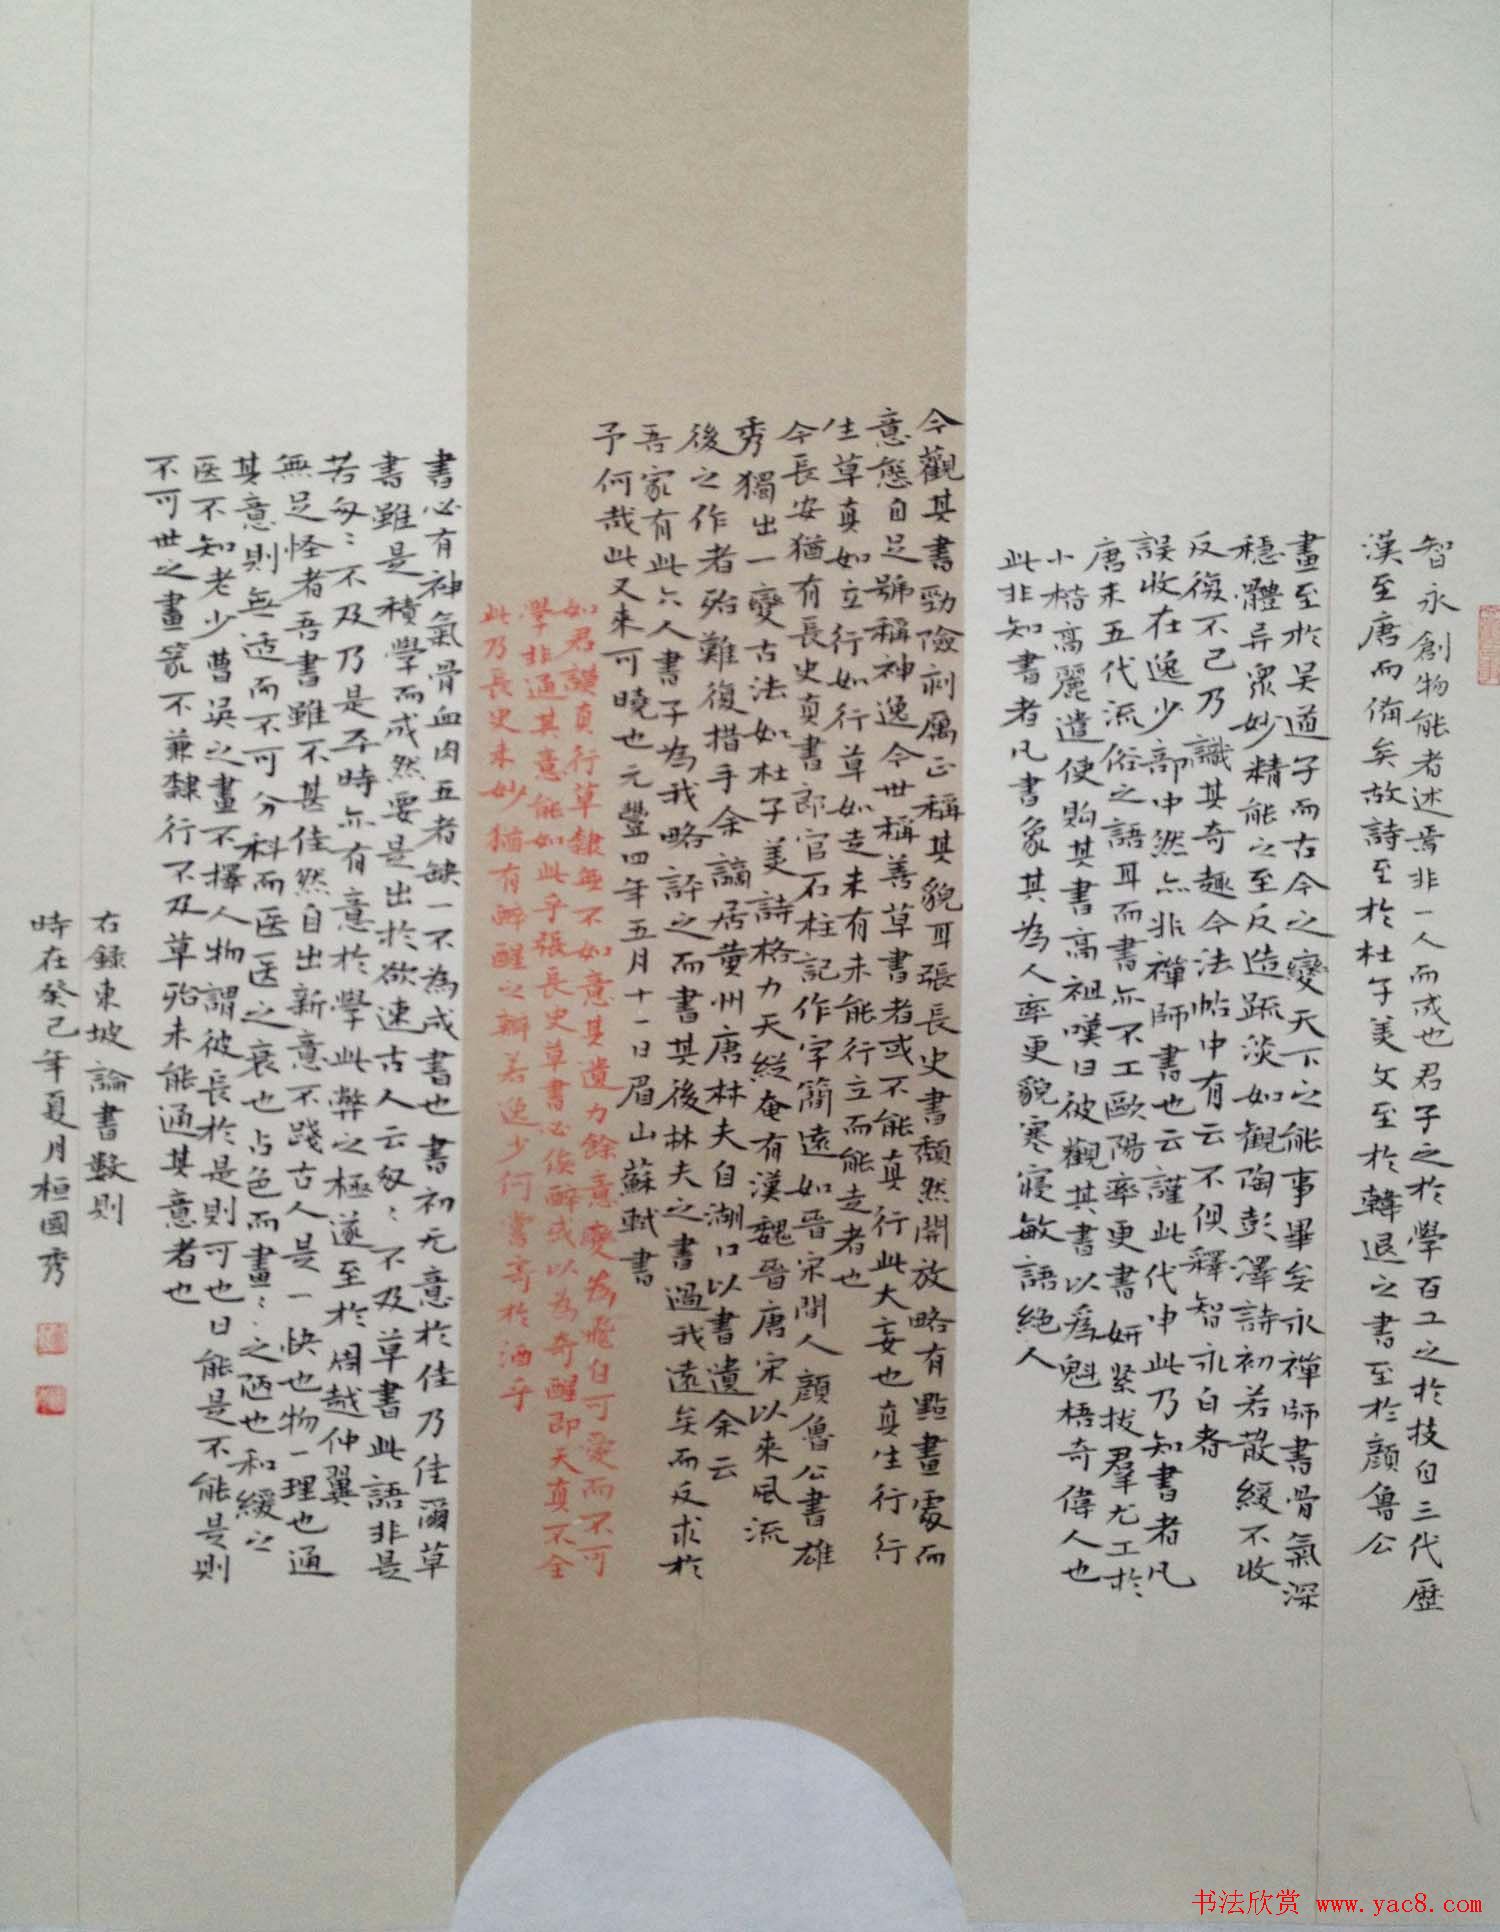 智永創物能者述焉非一人而成也君子之於學百工之於技自三代歷
漢至唐而備矣故詩至於杜子美文至於韓退之書至於顏魯公
畫至於吴道子而古今之變天下之能事畢矣永禪師書骨氣深
穩體异眾妙精能之至反造疏淡如觀陶彭澤詩初若散緩不收
反復不已乃識其奇趣今法帖中有云不俱釋智永白者
誤收在逸少部中然亦非禪師書也云謹此代申此乃知書者凡
唐末五代流俗之語耳而書亦不工歐陽率更書妍緊拔羣尤工於
小楷高麗遣使購其書高祖嘆曰彼觀其書以為魁梧奇偉人也
此非知書者凡書象其為人率更貌寒寢敏語絕人
今觀其書勁險刻厲正稱其貌耳張長史書頹然開放略有點畫處而
意態自足號稱神逸今世稱善草書者或不能真行此大妄也真生行行
生草真如立行如行草如走未有未能行立而能走者也
今長安猶有長史真書郎官石柱記作字簡遠如晉宋間人顏魯公書雄
秀獨出一變古法如杜子美詩格力天縱奄有漢魏晉唐宋以來風流
後之作者殆難復措手余謫居黄州唐林夫自湖口以書遺余云
吾家有此六人書子為我略評之而書其後林夫之書過我遠矣而反求於
予何哉此又未可曉也元豐四年五月十一日眉山蘇軾書
如君謨真行草隸無不如意其遺力餘意變為飛白可愛而不可
學非通其意能如此乎張長史草書必俟醉或以為奇醒即天真不全
此乃長史未妙猶有醉醒之辨若逸少何嘗寄於酒乎
書必有神氣骨血肉五者缺一不為成書也書初无意於佳乃佳爾草
書雖是積學而成然要是出於欲速古人云匆﹕不及草書此語非是
若匆﹕不及乃是平時亦有意於學此弊之極遂至於周越仲翼
無足怪者吾書雖不甚佳然自出新意不踐古人是一快也物一理也通
其意則無適而不可分科而医医之衰也占色而畫﹕之陋也和緩之
医不知老少曹吴之畫不擇人物謂彼長於是則可也曰能是不能是則
不可世之畫篆不兼隸行不及草殆未能通其意者也
右錄東坡論書數則
時在癸巳年夏月桓國秀
书法欣赏 www.yac8.com